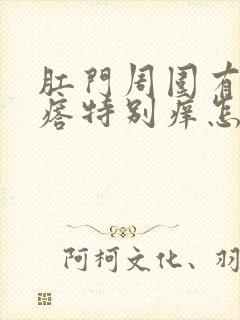 肛門周围有
痞特别痒怎
阿柯文化、羽